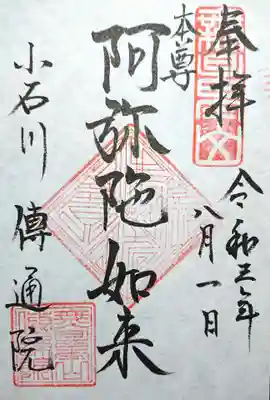 奉拝
令和三年
八月一日
本尊
阿弥陀如来
小石川
傳通院